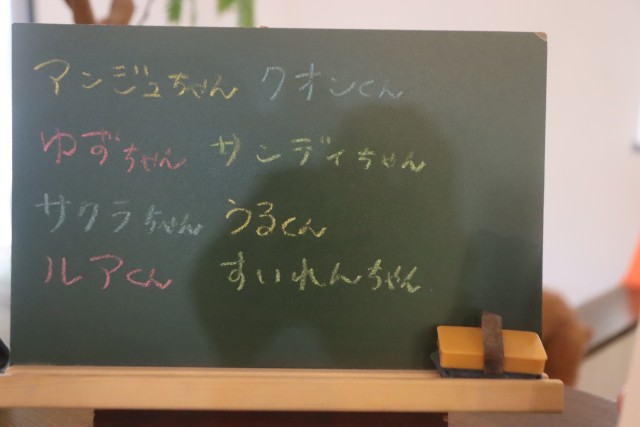 アンジュちゃん クオンくん
ゆずちゃん サンディちゃん
サクラちゃん うるくん
ルアくん すいれんちゃん